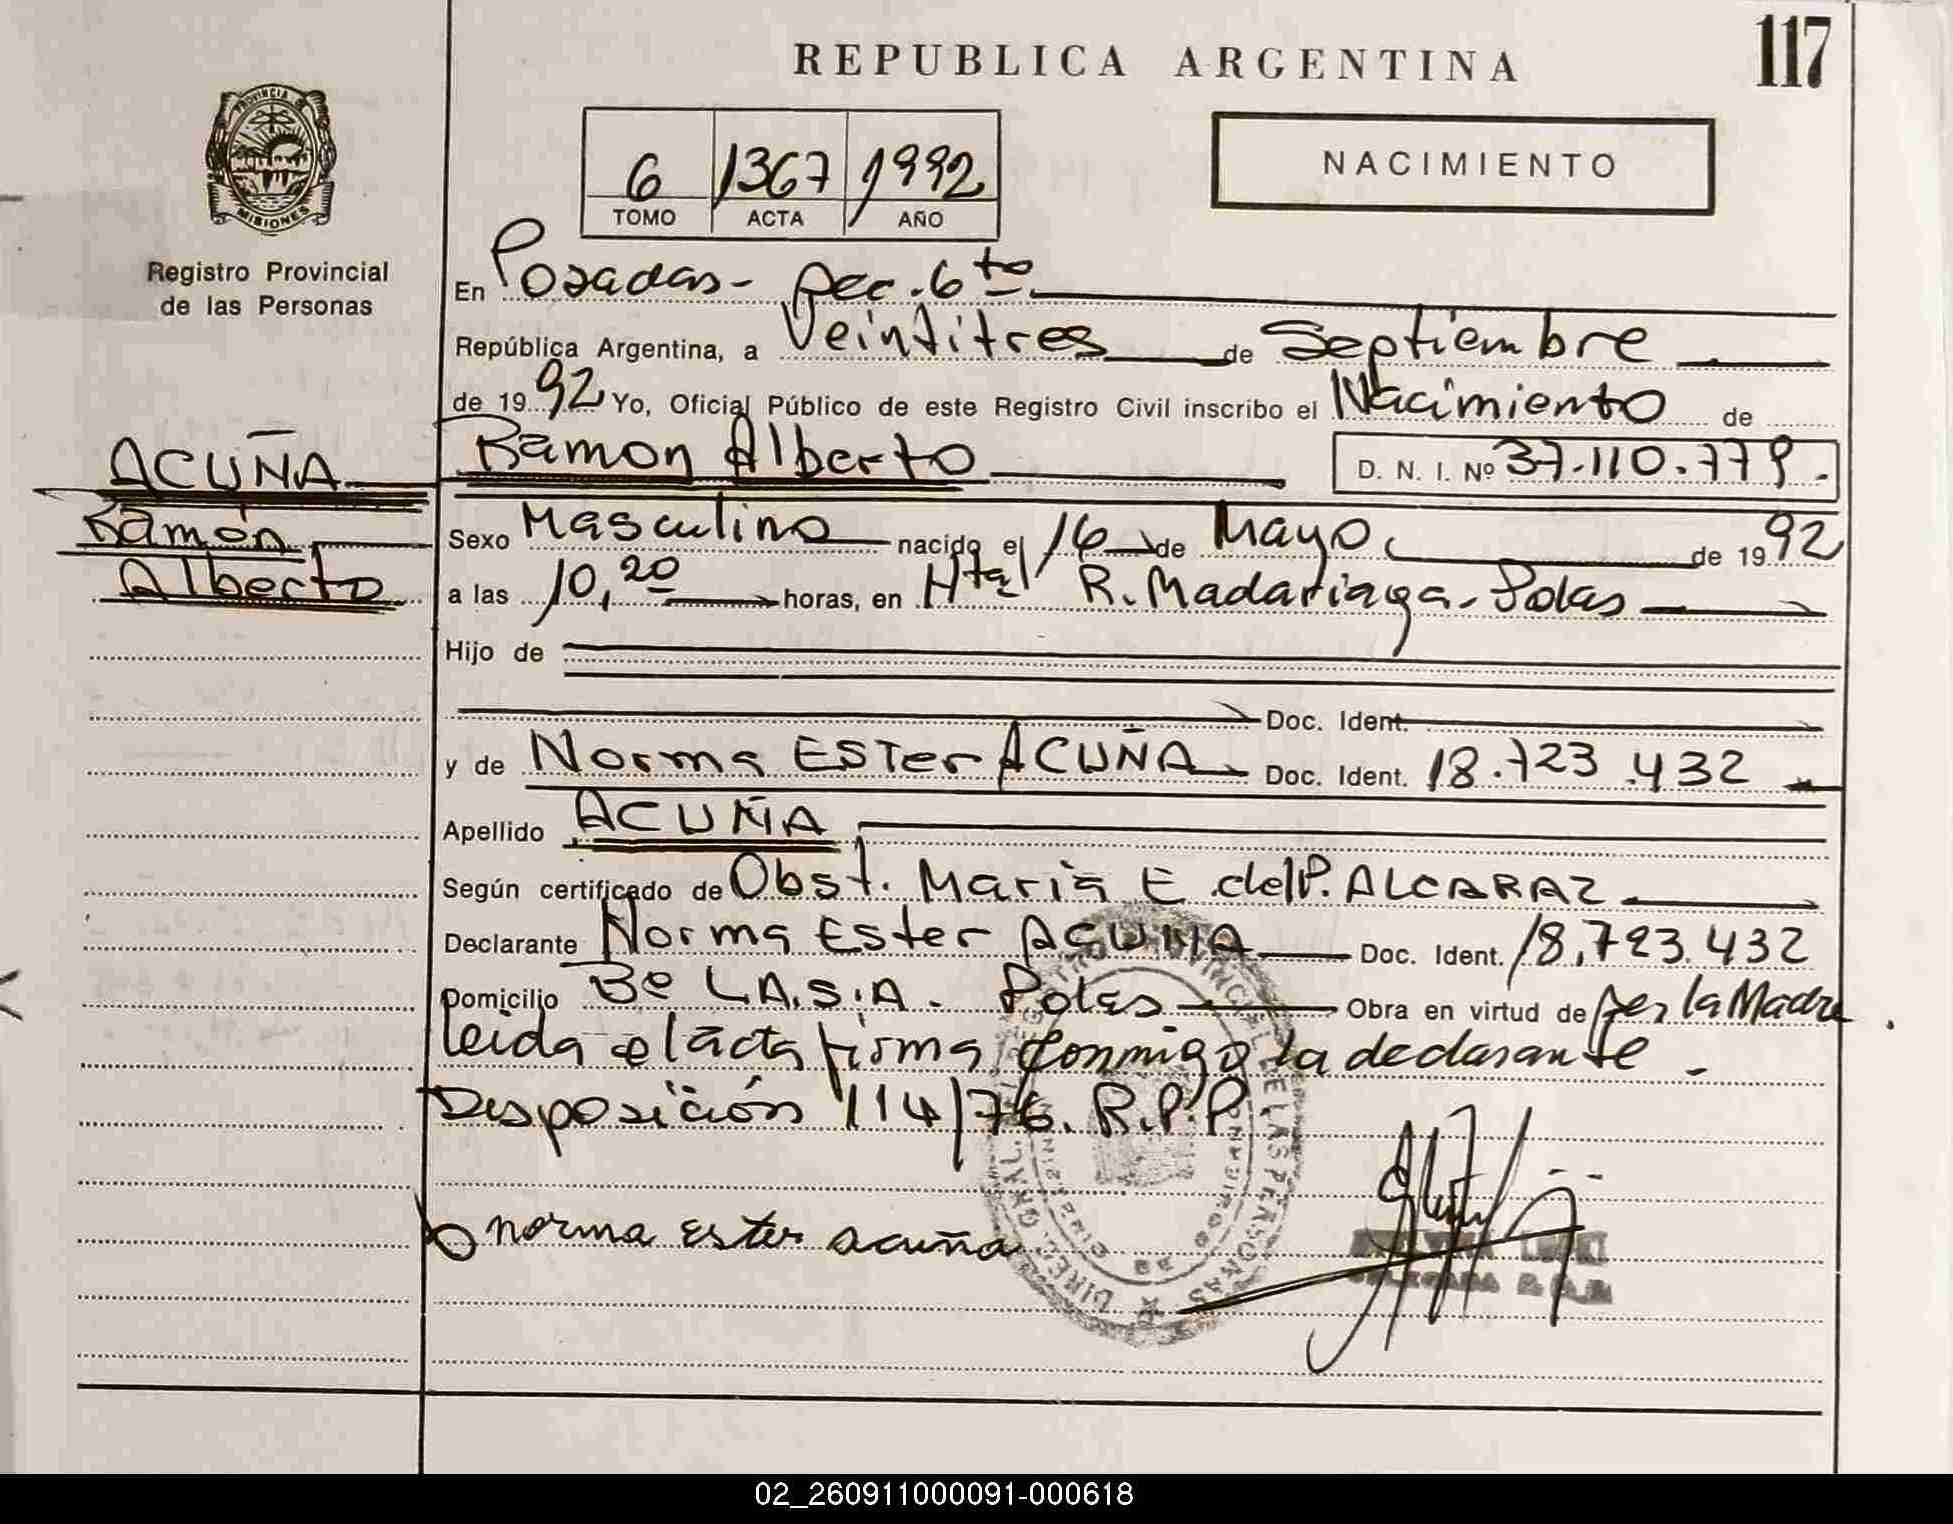 REPUBLICA ARGENTINA
117
PROVINCIA DE
MISIONES
Registro Provincial
de las Personas
6 1367 1992
TOMO ACTA AÑO
NACIMIENTO
En Posadas- Secc. 6to
República Argentina, a Veintitres de Septiembre
de 1992 Yo, Oficial Público de este Registro Civil inscribo el Nacimiento de
ACUÑA
Ramón
Alberto
Ramon Alberto D. N. I. Nº 37.110.779.
Sexo Masculino nacido el 16 de Mayo de 1992
a las 10,20 horas, en Htal R. Madariaga- Pdas
Hijo de
Doc. Ident.
y de Norma ESTer ACUÑA Doc. Ident. 18.723.432
Apellido ACUÑA
Según certificado de Obst. Maria E. del P. ALCARAZ
Declarante Norma Ester ACUÑA Doc. Ident. 18,723.432
Domicilio Bº L.A.S.A. - Pdas Obra en virtud de ser la Madre.
leida el acta firma conmigo la declarante.
Disposición 114/76. R.P.P.
norma ester acuña
DELEGADA
02_260911000091-000618